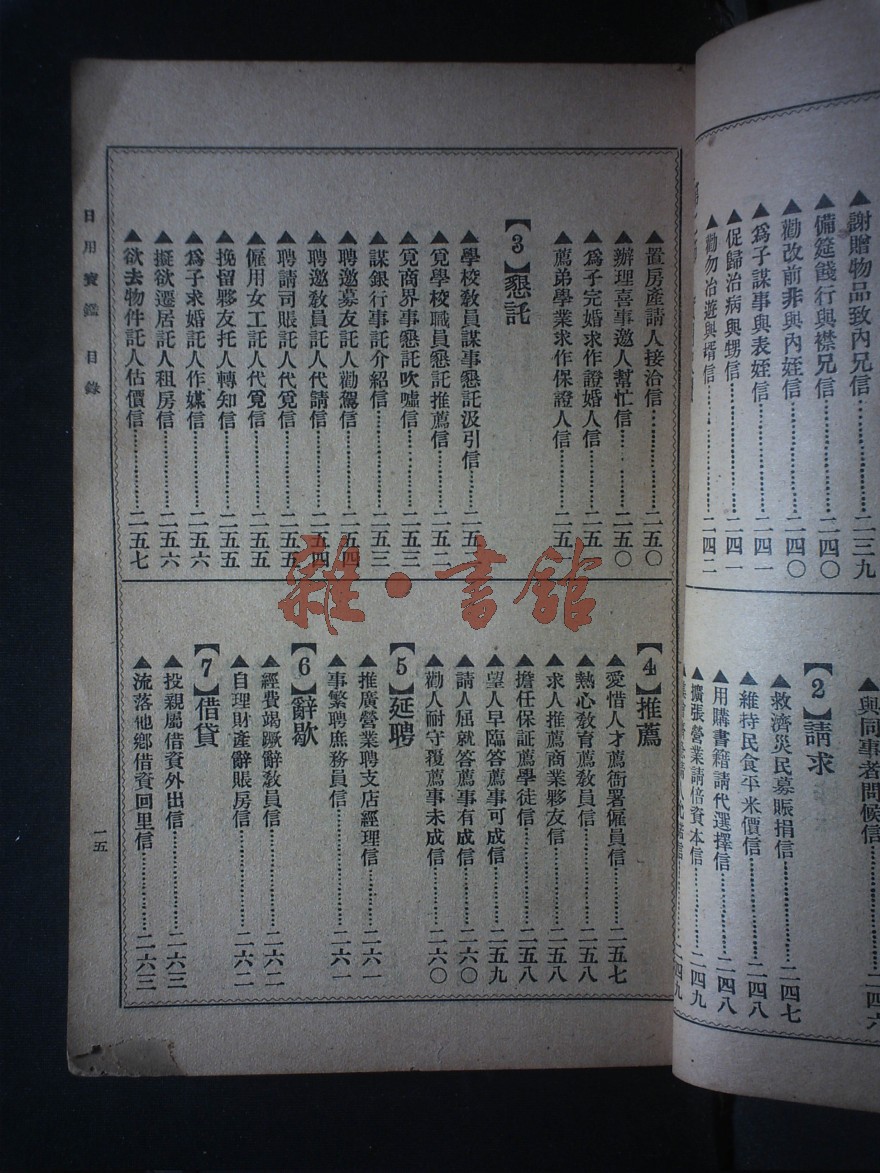 謝贈物品致內兄信…………二三九
備筵餞行與襟兄信…………二四〇
勸改前非與內姪信…………二四〇
▲爲子謀事與表姪信…………二四一
▲促歸治病與甥信…………二四一
▲勸勿冶遊與壻信…………二四二
▲與同事者問候信…………二四六
【2】請求
▲救濟災民募賑捐信…………二四七
▲維持民食平米價信…………二四八
▲用購書籍請代選擇信…………二四八
▲擴張營業請借資本信…………二四九
二四九
▲置房產請人接洽信…………二五〇
▲辦理喜事邀人幫忙信…………二五〇
▲爲子完婚求作證婚人信…………二五
▲薦弟學業求作保證人信…………二五
【3】懇託
▲學校敎員謀事懇託汲引信…………二五
▲覓學校職員懇託推薦信…………二五二
▲覓商界事懇託吹噓信…………二五三
▲謀銀行事託介紹信…………二五三
▲聘邀幕友託人勸駕信…………二五四
▲聘邀敎員託人代請信…………二五四
▲聘請司賬託人代覓信…………二五五
▲僱用女工託人代覓信…………二五五
▲挽留夥友托人轉知信…………二五五
▲爲子求婚託人作媒信…………二五六
▲擬欲遷居託人租房信…………二五六
▲欲去物件託人估價信…………二五七
【4】推薦
▲愛惜人才薦衙署僱員信…………二五七
▲熱心敎育薦敎員信…………二五八
▲求人推薦商業夥友信…………二五八
▲擔任保証薦學徒信…………二五八
▲望人早臨答薦事可成信…………二五九
▲請人屈就答薦事有成信…………二六〇
▲勸人耐守覆薦事未成信…………二六〇
【5】延聘
▲推廣營業聘支店經理信…………二六一
▲事繁聘庶務員信…………二六一
【6】辭歇
▲經費竭蹶辭敎員信…………二六二
▲自理財產辭賬房信…………二六二
【7】借貸
▲投親屬借資外出信…………二六三
▲流落他鄉借資回里信…………二六三
日用寶鑑 目錄
一五
雜·書館